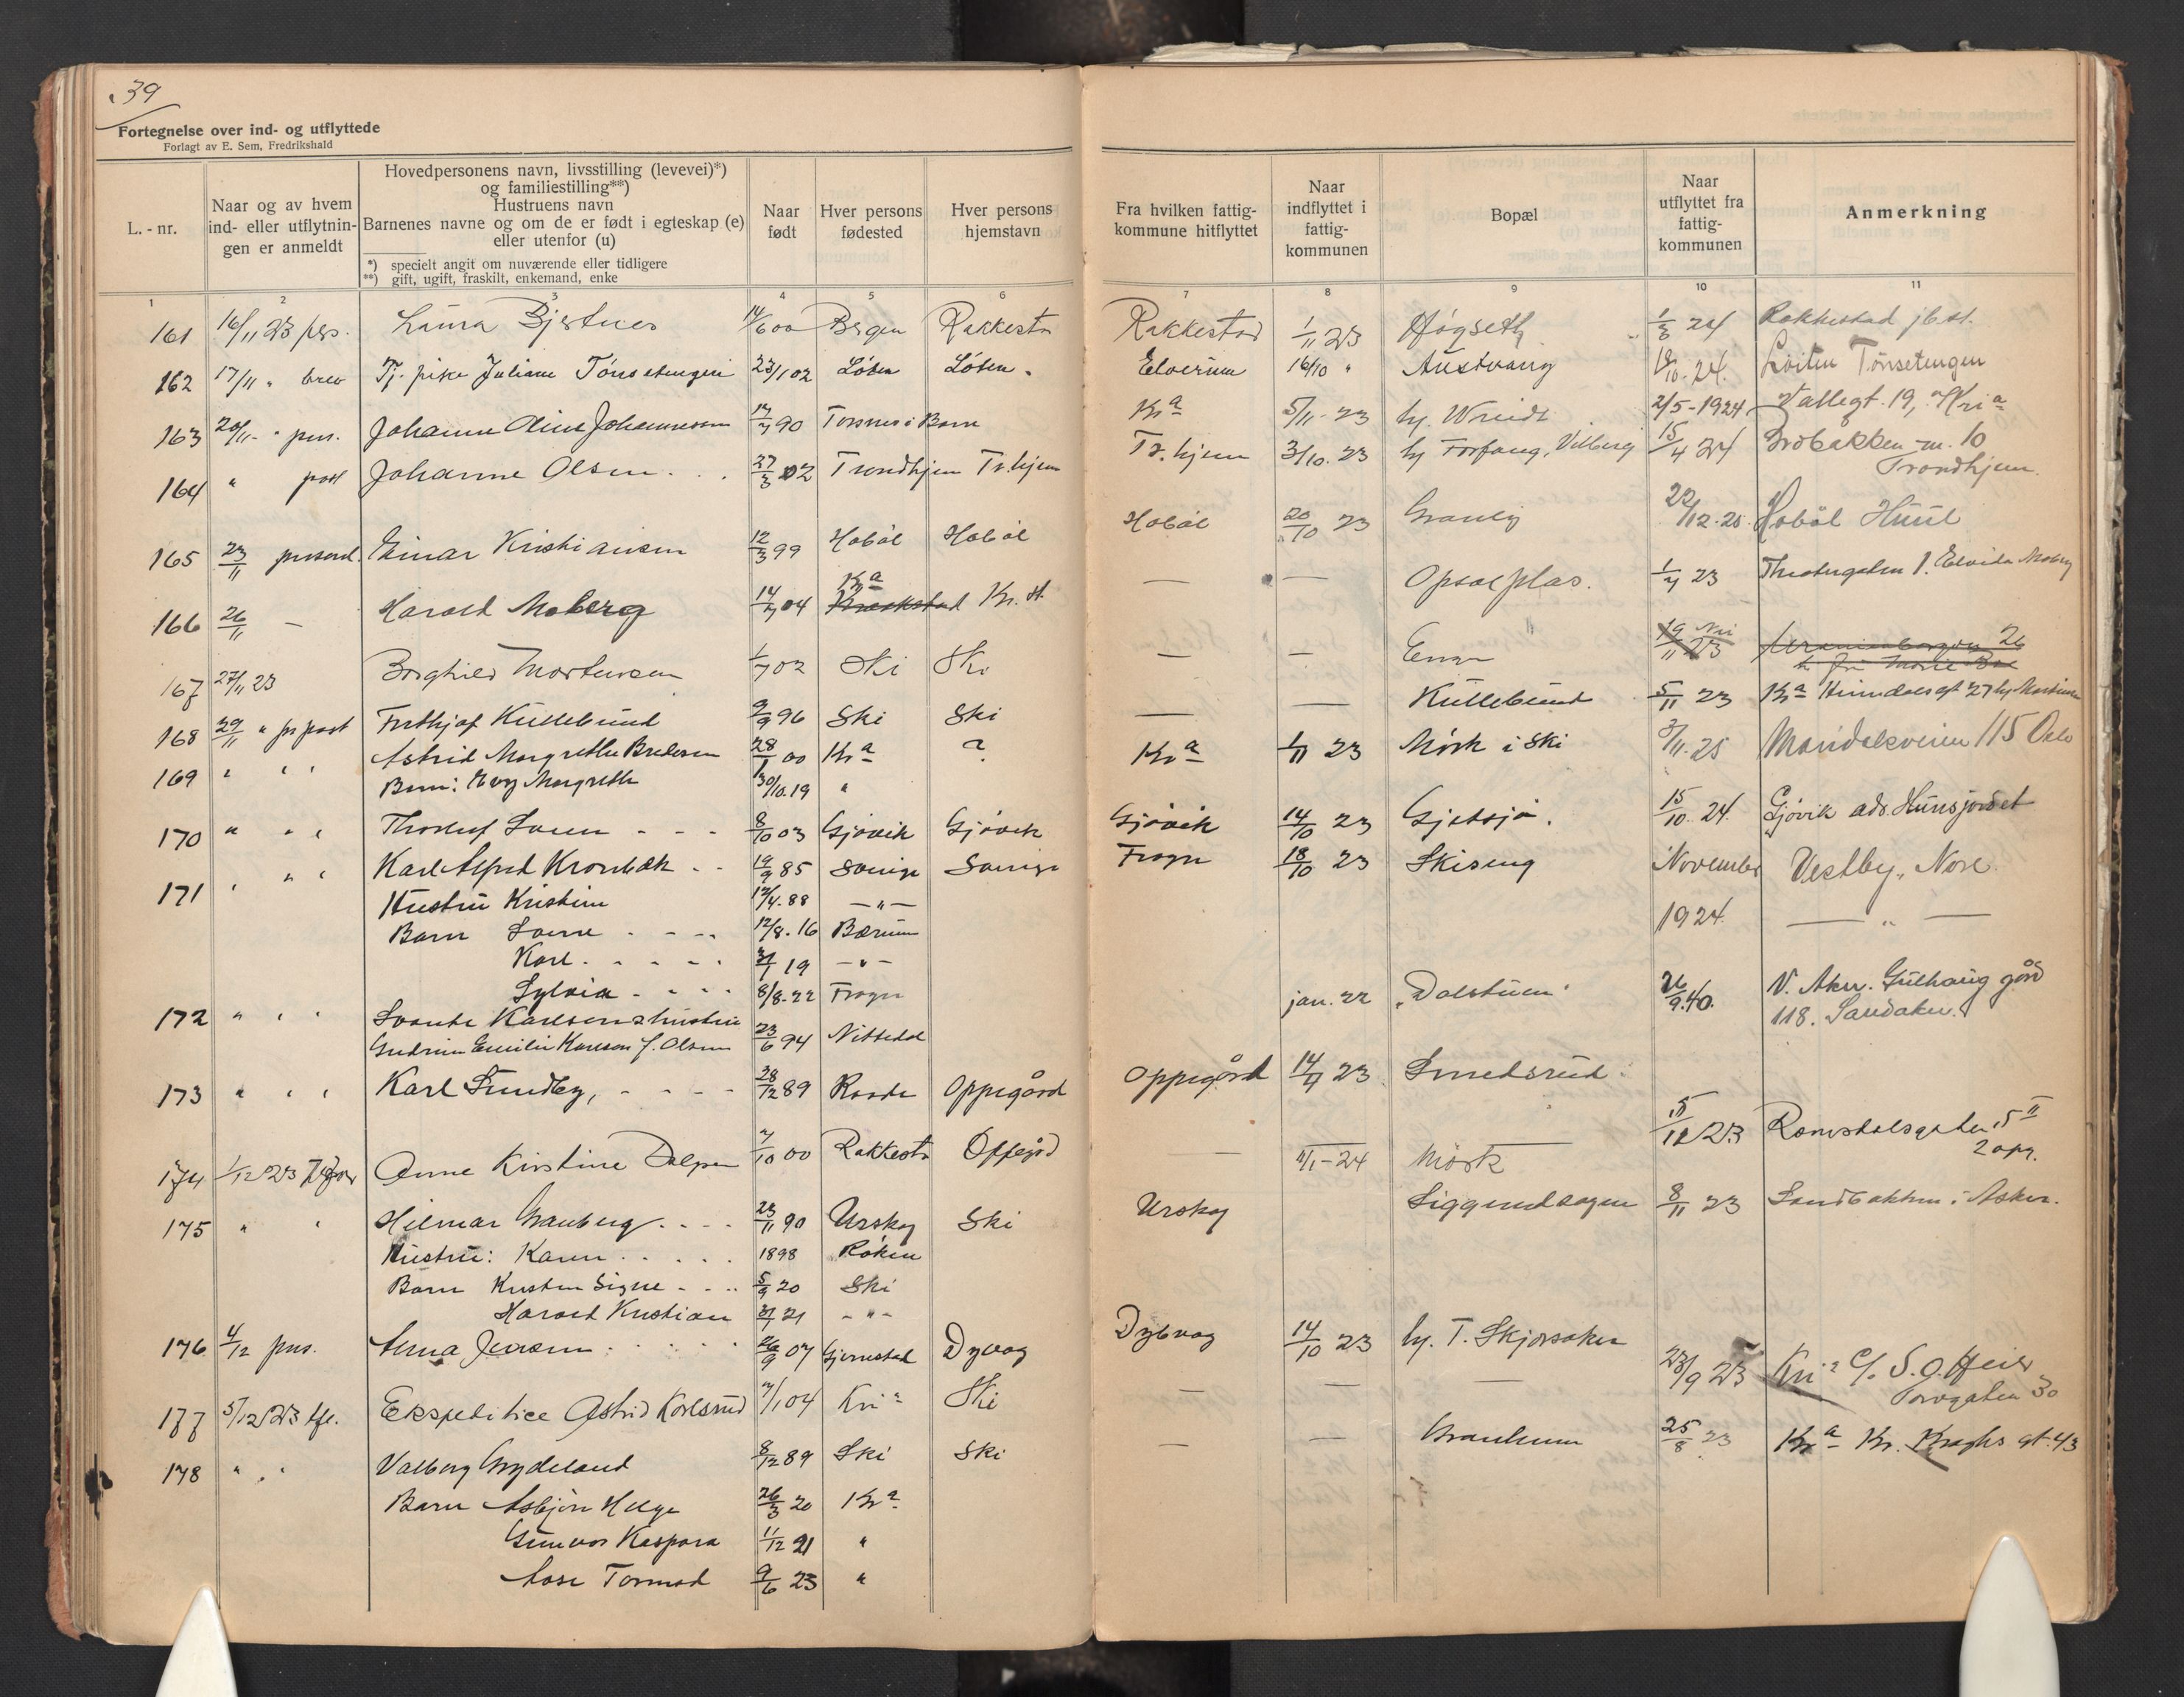 39
Fortegnelse over ind- og utflyttede
Forlagt av E. Sem, Fredrikshald
L. - nr.
Naar og av hvem
ind- eller utflytnin-
gen er anmeldt
Hovedpersonens navn, livsstilling (levevei)*)
og familiestilling**)
Hustruens navn
Barnenes navne og om de er født i egteskap (e)
eller utenfor (u)
*) specielt angit om nuværende eller tidligere
**) gift, ugift, fraskilt, enkemand, enke
Naar
født
Hver persons
fødested
Hver persons
hjemstavn
Fra hvilken fattig-
kommune hitflyttet
Naar
indflyttet i
fattig-
kommunen
Bopæl
Naar
utflyttet fra
fattig-
kommunen
Anmerkning
1 2 3 4 5 6 7 8 9 10 11
161 16/11 23 prs. Laura 14/6 00 Bergen Rakkesta Rakkestad 1/11 23 Høgseth 1/3 24 Rakkestad jb.st.
162 17/11 " brev Tj. pike Juliane Tønsetengen 23/1 02 Løten Løten Elverum 16/10 " Austvang 18/10. 24. Løiten Tønsetengen
163 20/11 - " prs. Johanne Oline Johannessen 90 Torsnes i Borre Kra 5/11 - 23 hj. 2/5-1924 19, Kria
164 " post Johanne Olsen 27/3 02 Trondhjem Tr.hjem Tr.hjem 3/10. 23 hj Forfang, Vilberg 15/4 24 Brobakken 10
Trondhjem.
165 23/11 personl. Einar Kristiansen 12/3 99 Hobøl Hobøl Hobøl 20/10 23 Granly 22/12.25. Hobøl Huul
166 26/11 — Harald Moberg 14/7 04 Kra Kraakstad Kr. st. — — Opsal plas. 23 Theatergaten 1. Moberg
167 27/11 23 Borghild Mortensen 1/7 02 Ski Ski — — Enger 19/11 23 26
168 29/11 " pr post Fridthjof Kullebund 9/9 96 Ski Ski — — Kullebund 5/11 23 Kra Heimdalsgt 27 hj
169 " " " Astrid Margrethe Bredesen 28/1 00 Kra ? Kra 1/11 23 Mørk i Ski 3/11.25 Maridalsveien 115 Oslo
Barn: Mary Margrethe 30/10.19 "
170 " " " Thorleif Soren - - - 8/10 03 Gjøvik Gjøvik Gjøvik 14/10 23 Gjetsjø. 15/10. 24. Gjøvik ads. Hunsjordet
171 " " " Karl Alfred Kronbæk - - 19/9 85 Sverige Sverige Frogn 18/10 23 Skiseng November Vestby, Nore
Hustru Kristine 12/4.88 — " — 1924. — " —
Barn 12/8.16 Bærum
Karl 19 — " —
Sylvia 8/8.22 Frogn
172 " " " Svante Karlsens hustru jan. 22 "Dalstuen" 26/9.40. V. Aker. Gulhaug gård
Gudrun Emilie Karlsen f. Olsen 23/6 94 Nittedal 118. Sandaker.
173 " " " Karl Sundby, - - - 28/12 89 Raade Oppegård Oppegård 23 Smedsrud
174 1/12 23 Anne Kirstine 7/10 00 Rakkesta Oppegård — 11/1-24 Mørk 15/11 23 Romsdalsgaten 15 II
2 opg.
175 " " Hilmar Granberg 23/11 90 Urskog Ski Urskog Siggerudhagen 8/11 23 Sandbakken i Asker.
Hustru: Karen 1898 Røken
Barn Kirsten Signe 20 Ski
Harald Kristian 21 — " —
176 4/12 prs. Anna Jensen 26/9 07 Gjerrestad Dyvåg Dybvag 14/10 23 hj. T. Skjorsaker
177 5/12 23 tfl. Ekspeditrice Astrid Karlsrud 04 Kria Ski — — — 28/9 23 Kria c/o S. O. Heier
Torvgaten 30
178 " " " Valborg Grydeland 8/12 89 Ski Ski — — Granheim 25/8 23 Kra Kr. Kroghs gt. 43
Barn Asbjørn Helge 26/3 20 Kra
Gunvor Kaspara 11/12 21 "
Aase Tormod 9/6 23 "